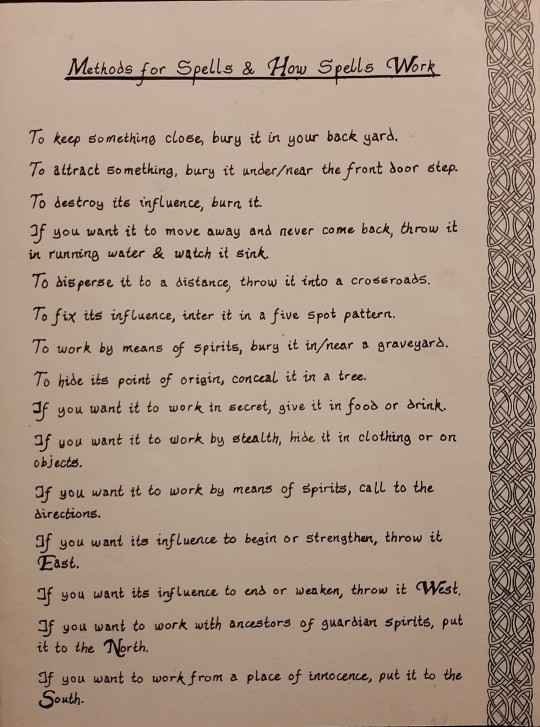 Methods for Spells & How Spells Work
To keep something close, bury it in your back yard.
To attract something, bury it under/near the front door step.
To destroy its influence, burn it.
If you want it to move away and never come back, throw it
in running water & watch it sink.
To disperse it to a distance, throw it into a crossroads.
To fix its influence, inter it in a five spot pattern.
To work by means of spirits, bury it in/near a graveyard.
To hide its point of origin, conceal it in a tree.
If you want it to work in secret, give it in food or drink.
If you want it to work by stealth, hide it in clothing or on
objects.
If you want it to work by means of spirits, call to the
directions.
If you want its influence to begin or strengthen, throw it
East.
If you want its influence to end or weaken, throw it West.
If you want to work with ancestors of guardian spirits, put
it to the North.
If you want to work from a place of innocence, put it to the
South.